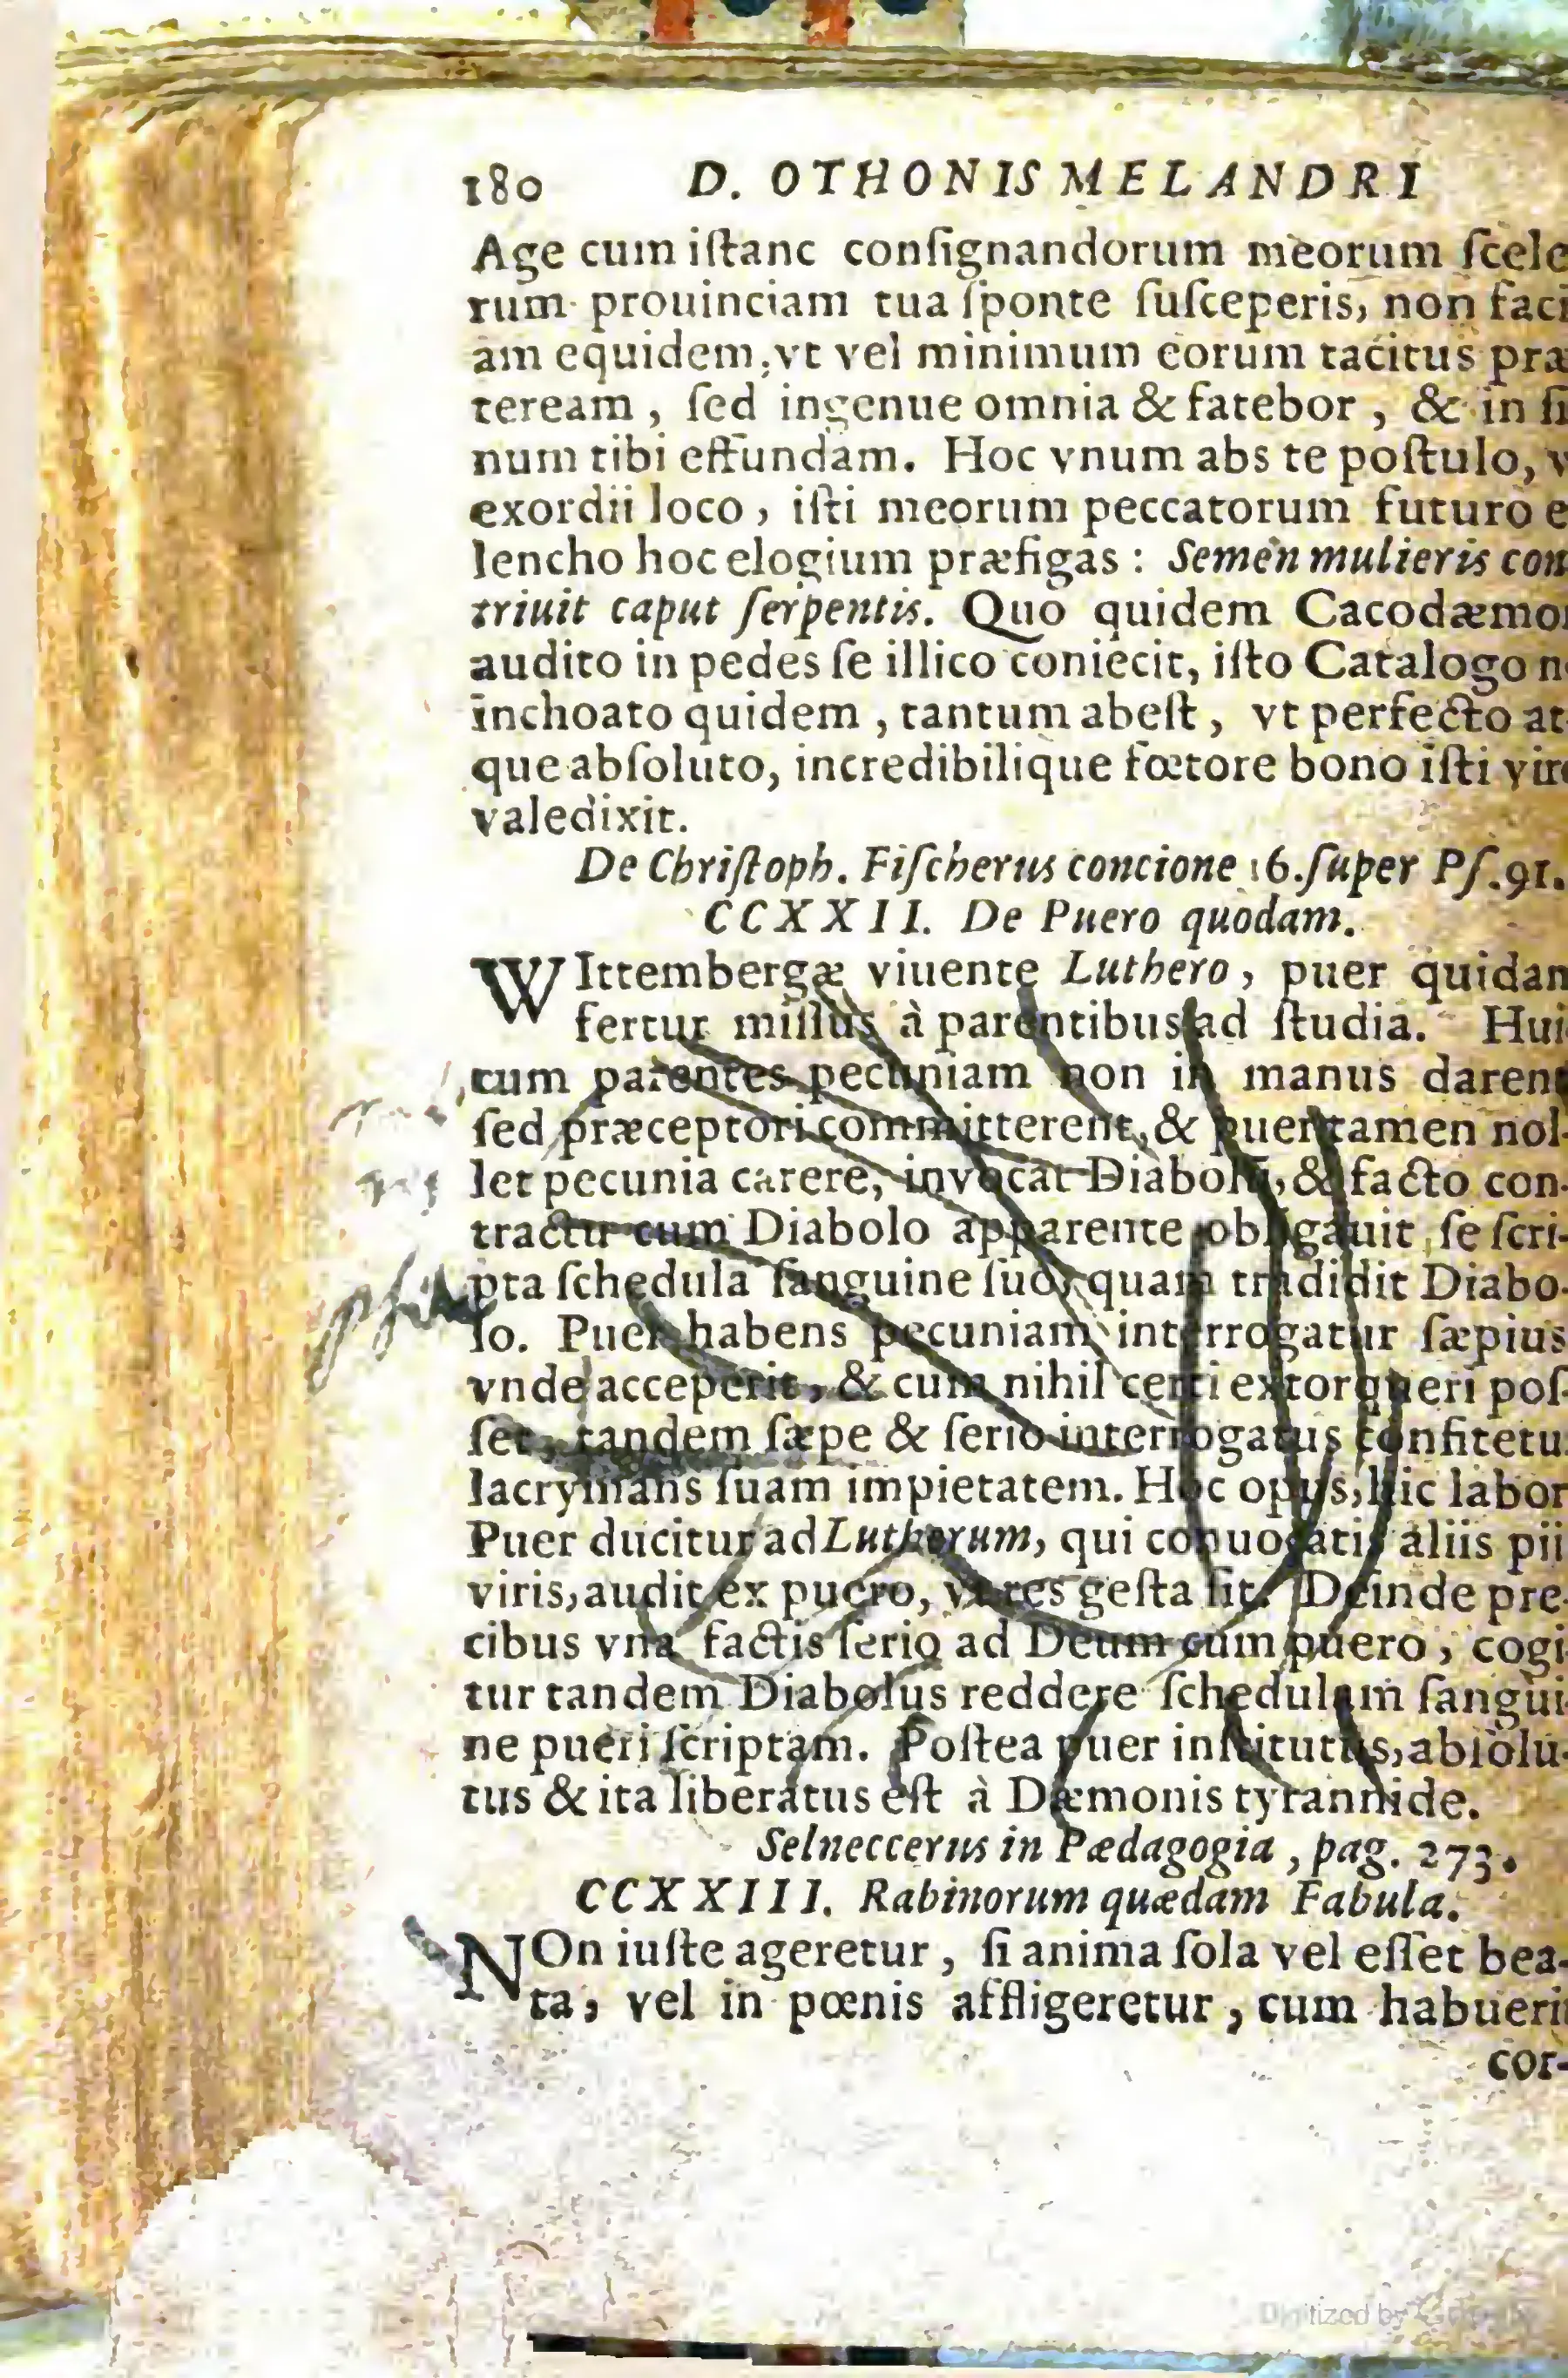 180 D. OTHONIS MELANDRI
Age cum iſtanc conſignandorum meorum ſcele
rum prouinciam tua ſponte ſuſceperis, non faci
am equidem, vt vel minimum eorum tacitus præ
teream, ſed ingenue omnia & fatebor, & in ſi
num tibi effundam. Hoc vnum abs te poſtulo, v
exordii loco, iſti meorum peccatorum futuro e
lencho hoc elogium præfigas: Semen mulieris con
triuit caput ſerpentis. Quo quidem Cacodæmo
audito in pedes ſe illico coniecit, iſto Catalogo n
inchoato quidem, tantum abeſt, vt perfecto at
que abſoluto, incredibilique fœtore bono iſti vir
valedixit.
De Chriſtoph. Fiſcherus concione 16. ſuper Pſ. 91.
CCXXII. De Puero quodam.
WIttembergæ viuente Luthero, puer quidam
fertur miſſus à parentibus ad ſtudia. Hui
cum parentes pecuniam non in manus darent
ſed præceptori committerent, & puer tamen nol-
let pecunia carere, invocat Diabolū, & facto con-
tractu cum Diabolo apparente obligauit ſe ſcri-
pta ſchedula ſanguine ſuo, quam tradidit Diabo-
lo. Puer habens pecuniam interrogatur ſæpius
vnde acceperit, & cum nihil certi extorqueri poſ-
ſet, tandem ſæpe & ſerio interrogatus confitetu
lacrymans ſuam impietatem. Hoc opus, hic labor
Puer ducitur ad Lutherum, qui conuocatis aliis pii
viris, audit ex puero, vt res geſta ſit. Deinde pre-
cibus vna factis ſerio ad Deum cum puero, cogi-
tur tandem Diabolus reddere ſchedulam ſangui-
ne pueri ſcriptam. Poſtea puer inſtitutus, abſolu-
tus & ita liberatus eſt à Dæmonis tyrannide.
Selneccerus in Pædagogia, pag. 273.
CCXXIII. Rabinorum quædam Fabula.
NOn iuſte ageretur, ſi anima ſola vel eſſet bea-
ta, vel in pœnis affligeretur, cum habueri
cor-
Digitized by Google